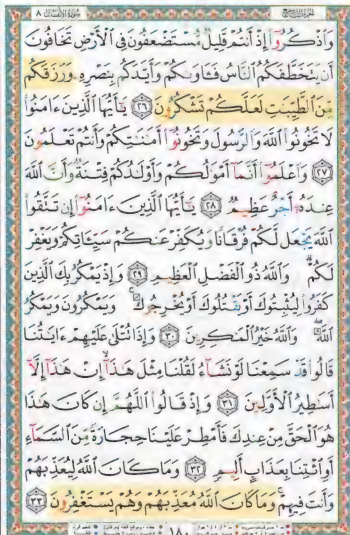 سورة الأنفال ٨
وَاذْكُرُوا إِذْ أَنتُمْ قَلِيلٌ مُّسْتَضْعَفُونَ فِي الْأَرْضِ تَخَافُونَ
أَن يَتَخَطَّفَكُمُ النَّاسُ فَآوَىٰكُمْ وَأَيَّدَكُم بِنَصْرِهِ وَرَزَقَكُم
مِّنَ الطَّيِّبَٰتِ لَعَلَّكُمْ تَشْكُرُونَ ٢٦ يَٰأَيُّهَا الَّذِينَ ءَامَنُوا
لَا تَخُونُوا اللَّهَ وَالرَّسُولَ وَتَخُونُوا أَمَٰنَٰتِكُمْ وَأَنتُمْ تَعْلَمُونَ
٢٧ وَاعْلَمُوا أَنَّمَا أَمْوَٰلُكُمْ وَأَوْلَٰدُكُمْ فِتْنَةٌ وَأَنَّ اللَّهَ
عِندَهُ أَجْرٌ عَظِيمٌ ٢٨ يَٰأَيُّهَا الَّذِينَ ءَامَنُوا إِن تَتَّقُوا
اللَّهَ يَجْعَل لَّكُمْ فُرْقَانًا وَيُكَفِّرْ عَنكُمْ سَيِّـَٔاتِكُمْ وَيَغْفِرْ
لَكُمْ وَاللَّهُ ذُو الْفَضْلِ الْعَظِيمِ ٢٩ وَإِذْ يَمْكُرُ بِكَ الَّذِينَ
كَفَرُوا لِيُثْبِتُوكَ أَوْ يَقْتُلُوكَ أَوْ يُخْرِجُوكَ وَيَمْكُرُونَ وَيَمْكُرُ
اللَّهُ وَاللَّهُ خَيْرُ الْمَٰكِرِينَ ٣٠ وَإِذَا تُتْلَىٰ عَلَيْهِمْ ءَايَٰتُنَا
قَالُوا قَدْ سَمِعْنَا لَوْ نَشَاءُ لَقُلْنَا مِثْلَ هَٰذَا إِنْ هَٰذَا إِلَّا
أَسَٰطِيرُ الْأَوَّلِينَ ٣١ وَإِذْ قَالُوا اللَّهُمَّ إِن كَانَ هَٰذَا
هُوَ الْحَقَّ مِنْ عِندِكَ فَأَمْطِرْ عَلَيْنَا حِجَارَةً مِّنَ السَّمَاءِ
أَوِ ائْتِنَا بِعَذَابٍ أَلِيمٍ ٣٢ وَمَا كَانَ اللَّهُ لِيُعَذِّبَهُمْ
وَأَنتَ فِيهِمْ وَمَا كَانَ اللَّهُ مُعَذِّبَهُمْ وَهُمْ يَسْتَغْفِرُونَ ٣٣
١٨٠